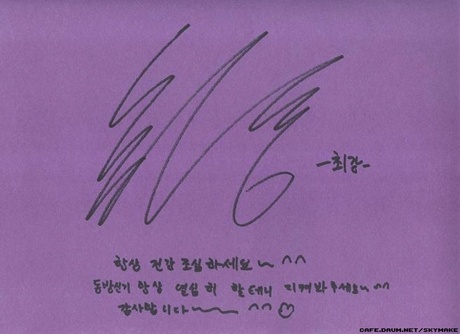 -최강-
항상 건강 조심하세요~ ^^
동방신기 항상 열심히 할테니 지켜봐주세요~ ^^
감사합니다~~ ^^ ♡
CAFE.DAUM.NET/SKYMAKE